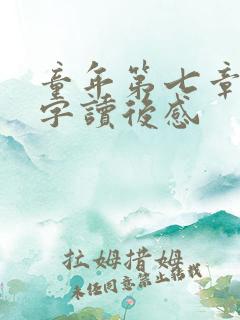 童年第七章
字讀後感
拉姆措姆
未经同意禁止转载